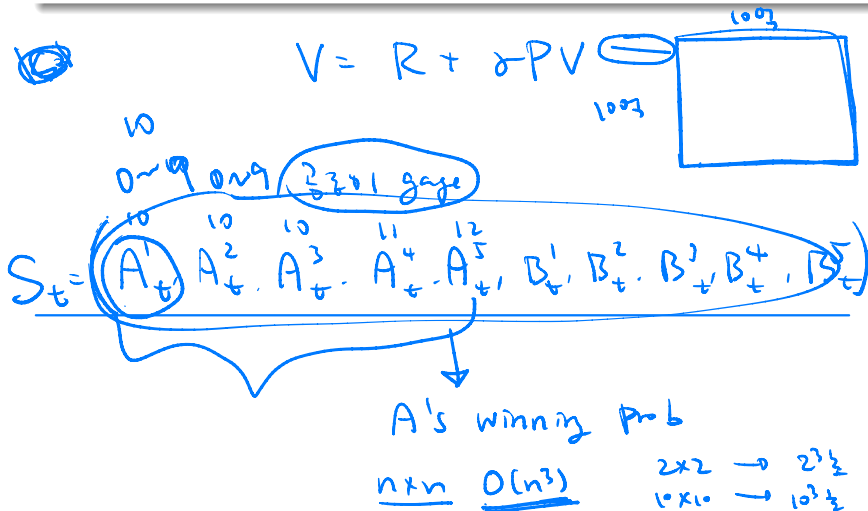 100경
V = R + γPV
100경
10
0~9 0~9 gage
10 10 10 11 12
S_t = (A_t^1, A_t^2, A_t^3, A_t^4, A_t^5, B_t^1, B_t^2, B_t^3, B_t^4, B_t^5)
A's winning prob
n×n O(n³)
2×2 → 2³초
10×10 → 10³초